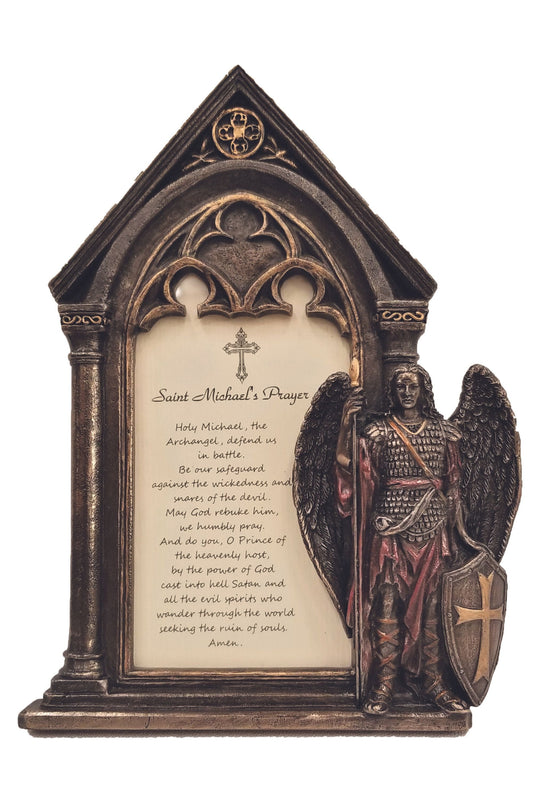 Saint Michael's Prayer
Holy Michael, the
Archangel, defend us
in battle.
Be our safeguard
against the wickedness and
snares of the devil.
May God rebuke him,
we humbly pray.
And do you, O Prince of
the heavenly host,
by the power of God
cast into hell Satan and
all the evil spirits who
wander through the world
seeking the ruin of souls.
Amen.